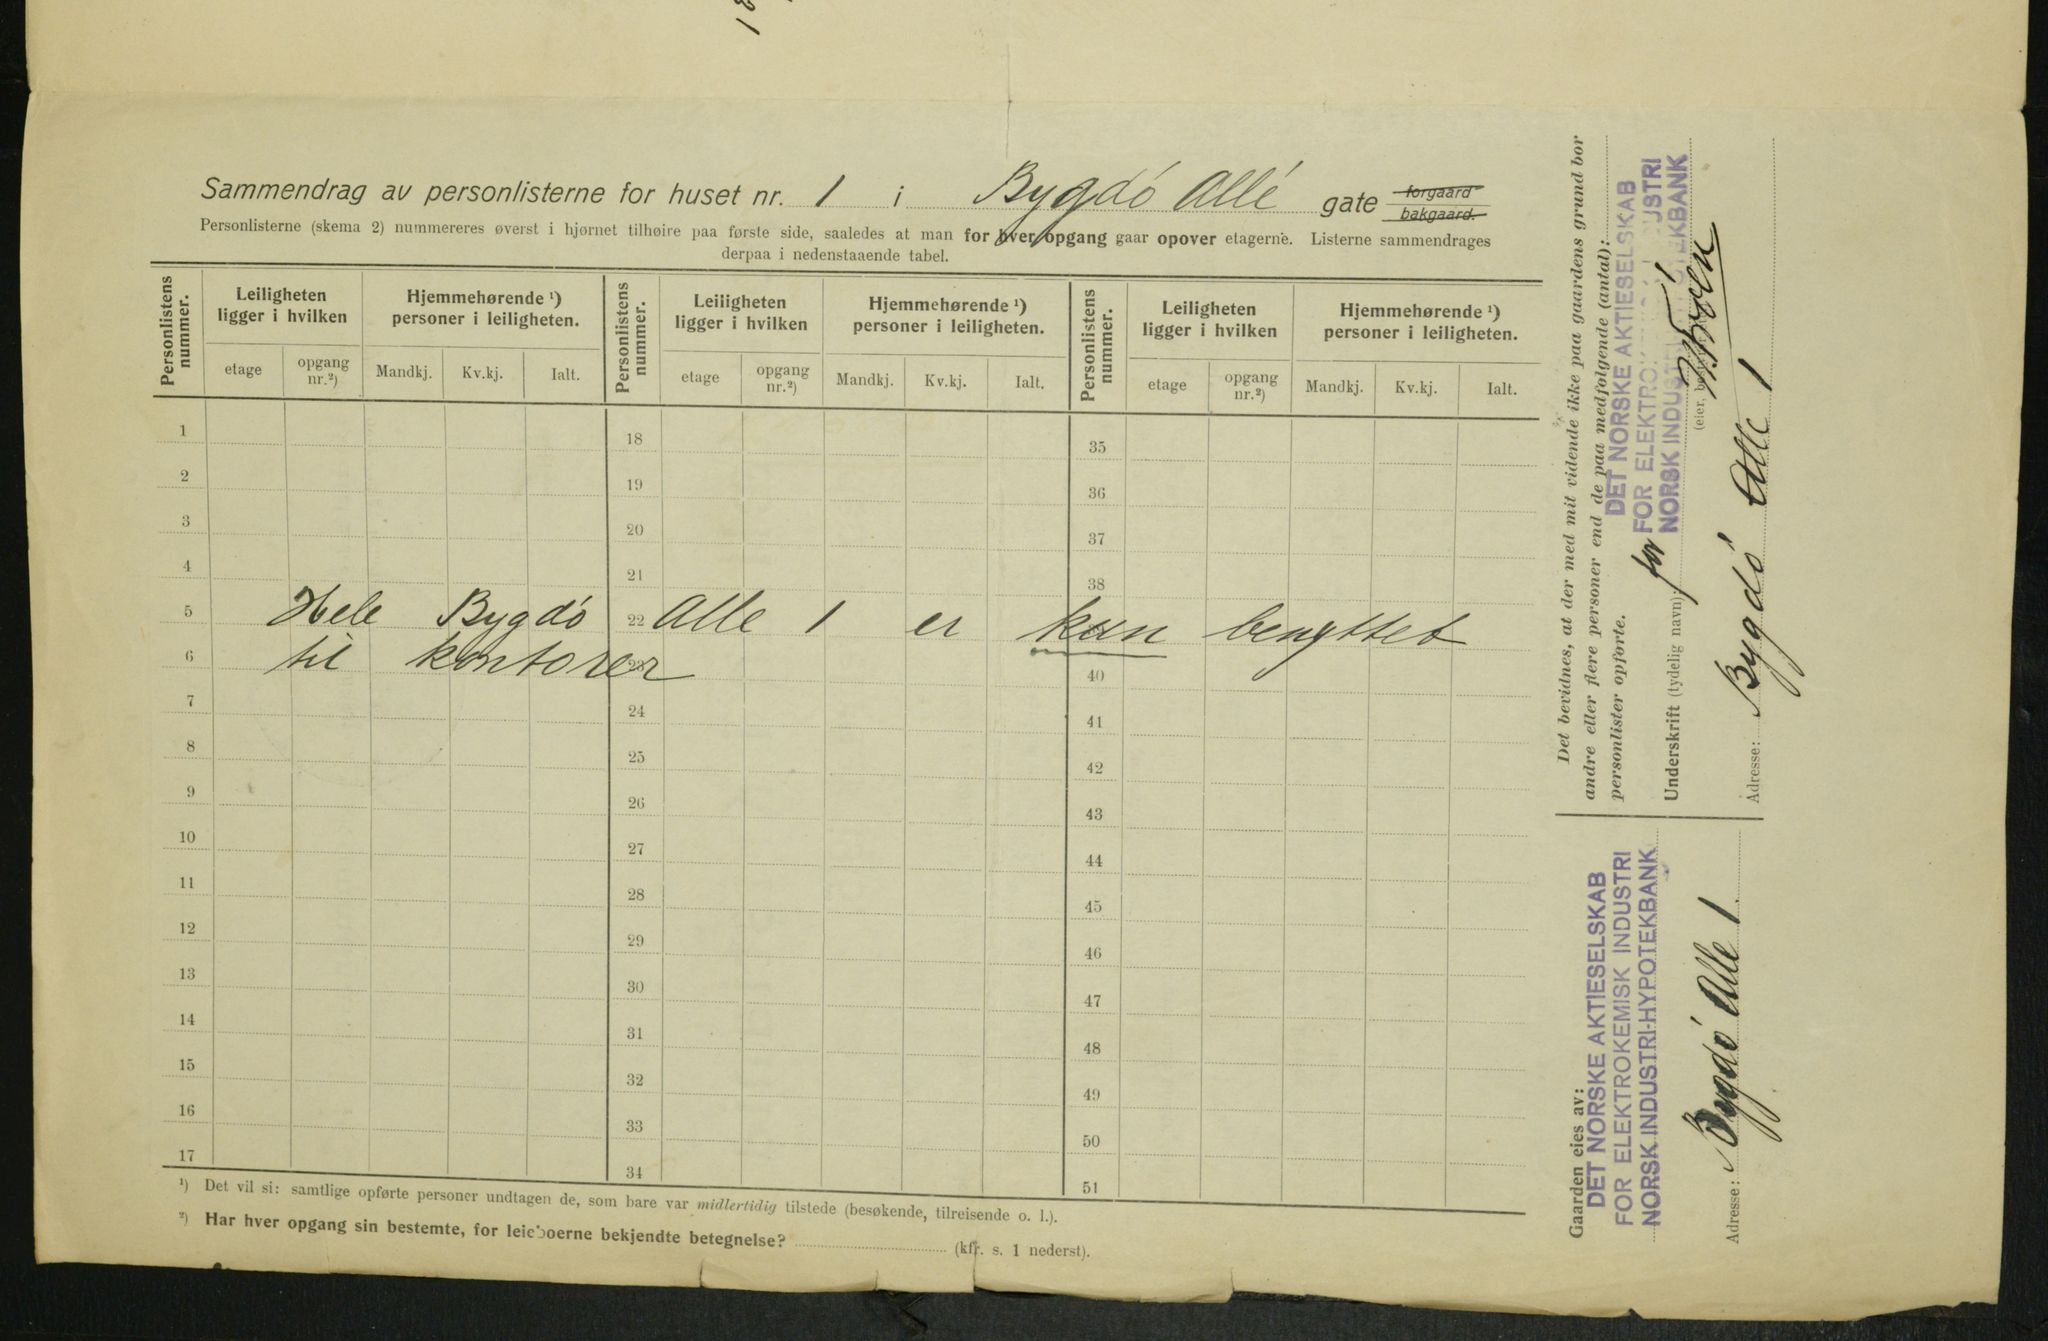 Sammendrag av personlisterne for huset nr. 1 i Bygdö Allé gate forgaard bakgaard.
Personlisterne (skema 2) nummereres øverst i hjørnet tilhøire paa første side, saaledes at man for hver opgang gaar opover etagerne. Listerne sammendrages
derpaa i nedenstaaende tabel.
Personlistens nummer.
Leiligheten ligger i hvilken
Hjemmehørende ¹) personer i leiligheten.
Personlistens nummer.
Leiligheten ligger i hvilken
Hjemmehørende ¹) personer i leiligheten.
Personlistens nummer.
Leiligheten ligger i hvilken
Hjemmehørende ¹) personer i leiligheten.
etage opgang nr.²) Mandkj. Kv.kj. Ialt. etage opgang nr.²) Mandkj. Kv.kj. Ialt. etage opgang nr.²) Mandkj. Kv.kj. Ialt.
1 18 35
2 19 36
3 20 37
4 21 38
5 22
Hele Bygdö Alle 1 er kun benyttet
6 23 40
til kontorer
7 24 41
8 25 42
9 26 43
10 27 44
11 28 45
12 29 46
13 30 47
14 31 48
15 32 49
16 33 50
17 34 51
¹) Det vil si: samtlige opførte personer undtagen de, som bare var midlertidig tilstede (besøkende, tilreisende o. l.).
²) Har hver opgang sin bestemte, for leieboerne bekjendte betegnelse? (kfr. s. 1 nederst).
Det bevidnes, at der med mit vidende ikke paa gaardens grund bor
andre eller flere personer end de paa medfølgende (antal):
personlister opførte.
DET NORSKE AKTIESELSKAB
FOR ELEKTROKEMISK INDUSTRI
NORSK INDUSTRI-HYPOTEKBANK
Underskrift (tydelig navn): for
(eier,
Adresse: Bygdö Alle 1
Gaarden eies av:
DET NORSKE AKTIESELSKAB
FOR ELEKTROKEMISK INDUSTRI
NORSK INDUSTRI-HYPOTEKBANK
Adresse: Bygdö Alle 1